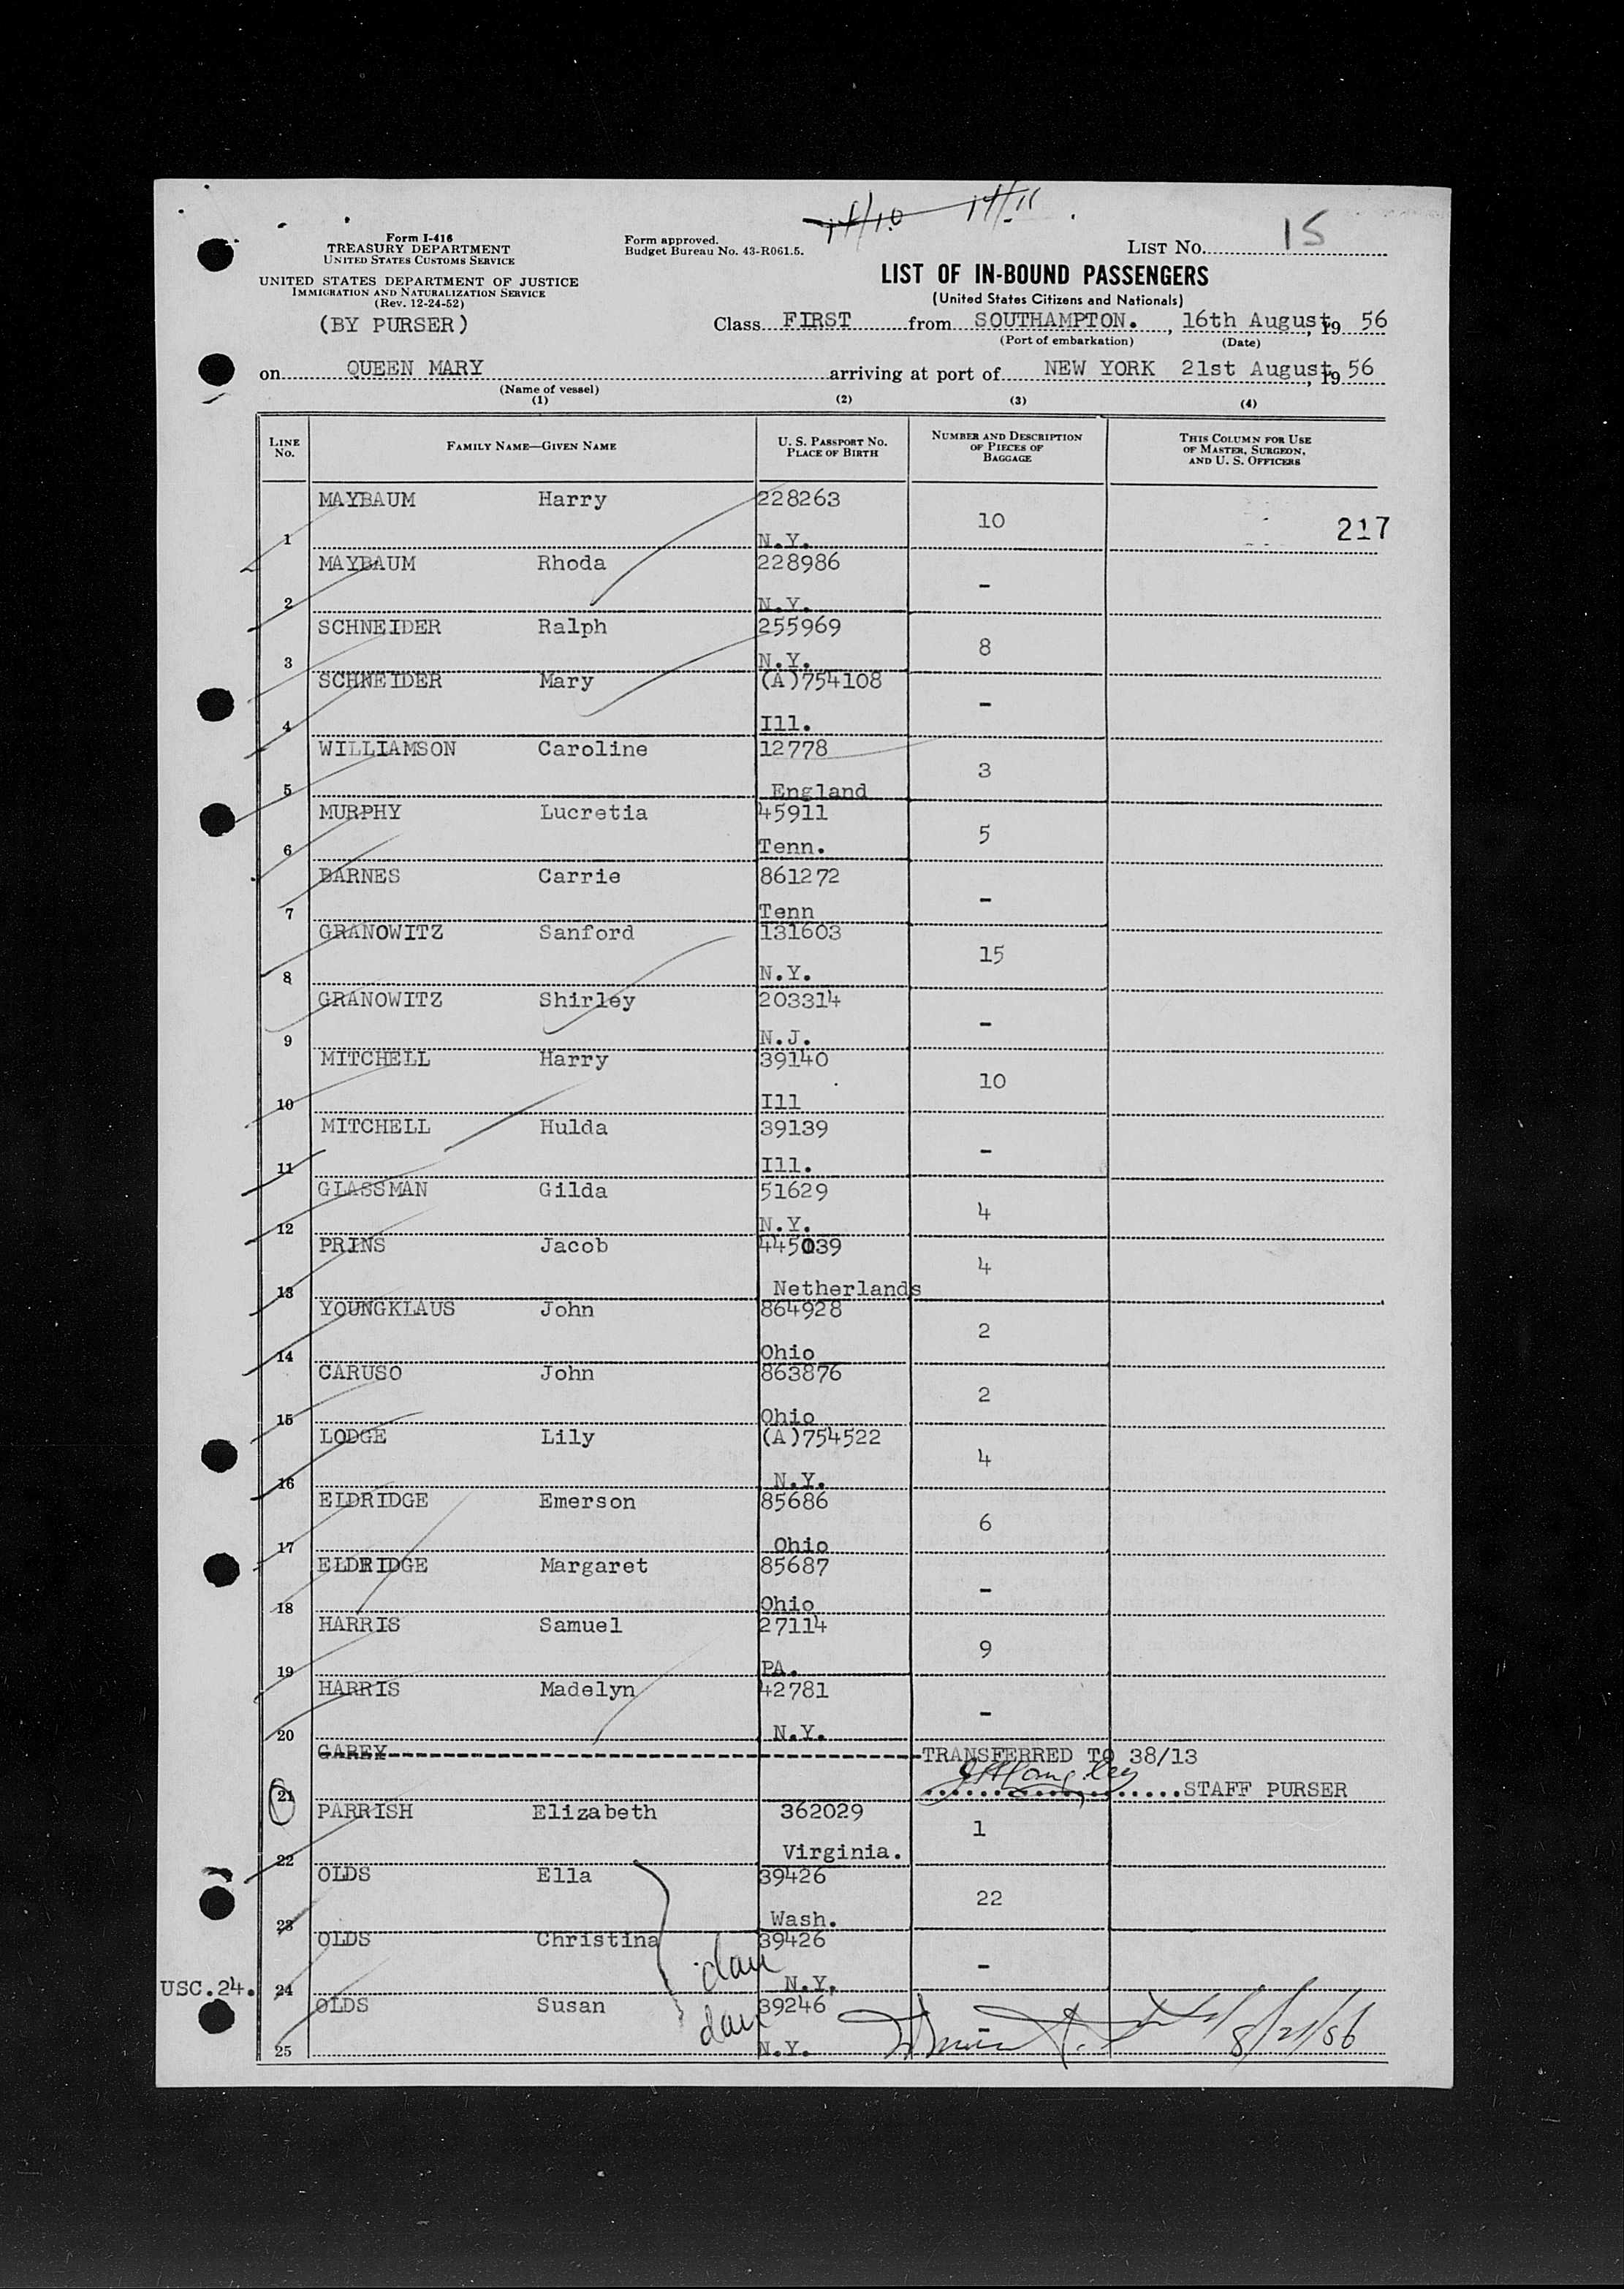 14/10 14/11
Form I-416
TREASURY DEPARTMENT
UNITED STATES CUSTOMS SERVICE
UNITED STATES DEPARTMENT OF JUSTICE
IMMIGRATION AND NATURALIZATION SERVICE
(Rev. 12-24-52)
(BY PURSER)
Form approved.
Budget Bureau No. 43-R061.5.
LIST NO. 15
LIST OF IN-BOUND PASSENGERS
(United States Citizens and Nationals)
Class FIRST from SOUTHAMPTON. , 16th August, 19 56
(Port of embarkation) (Date)
on QUEEN MARY arriving at port of NEW YORK 21st August, 19 56
(Name of vessel)
(1) (2) (3) (4)
LINE No. FAMILY NAME—GIVEN NAME U. S. PASSPORT NO. PLACE OF BIRTH NUMBER AND DESCRIPTION OF PIECES OF BAGGAGE THIS COLUMN FOR USE OF MASTER, SURGEON, AND U. S. OFFICERS
MAYBAUM Harry 228263
10 217
1 N.Y.
MAYBAUM Rhoda 228986
-
2 N.Y.
SCHNEIDER Ralph 255969
8
3 N.Y.
SCHNEIDER Mary (A)754108
-
4 Ill.
WILLIAMSON Caroline 12778
3
5 England
MURPHY Lucretia 45911
5
6 Tenn.
BARNES Carrie 861272
-
7 Tenn
GRANOWITZ Sanford 131603
15
8 N.Y.
GRANOWITZ Shirley 203314
-
9 N.J.
MITCHELL Harry 39140
10
10 Ill
MITCHELL Hulda 39139
-
11 Ill.
GLASSMAN Gilda 51629
4
12 N.Y.
PRINS Jacob 445039
4
13 Netherlands
YOUNGKLAUS John 864928
2
14 Ohio
CARUSO John 863876
2
15 Ohio
LODGE Lily (A)754522
4
16 N.Y.
ELDRIDGE Emerson 85686
6
17 Ohio
ELDRIDGE Margaret 85687
-
18 Ohio
HARRIS Samuel 27114
9
19 PA.
HARRIS Madelyn 42781
-
20 N.Y.
GAREY TRANSFERRED TO 38/13
21 STAFF PURSER
PARRISH Elizabeth 362029
1
22 Virginia.
OLDS Ella 39426
22
23 Wash.
OLDS Christina 39426
dau -
USC.24. 24 N.Y.
OLDS Susan 39246
dau -
25 N.Y. 8/21/56